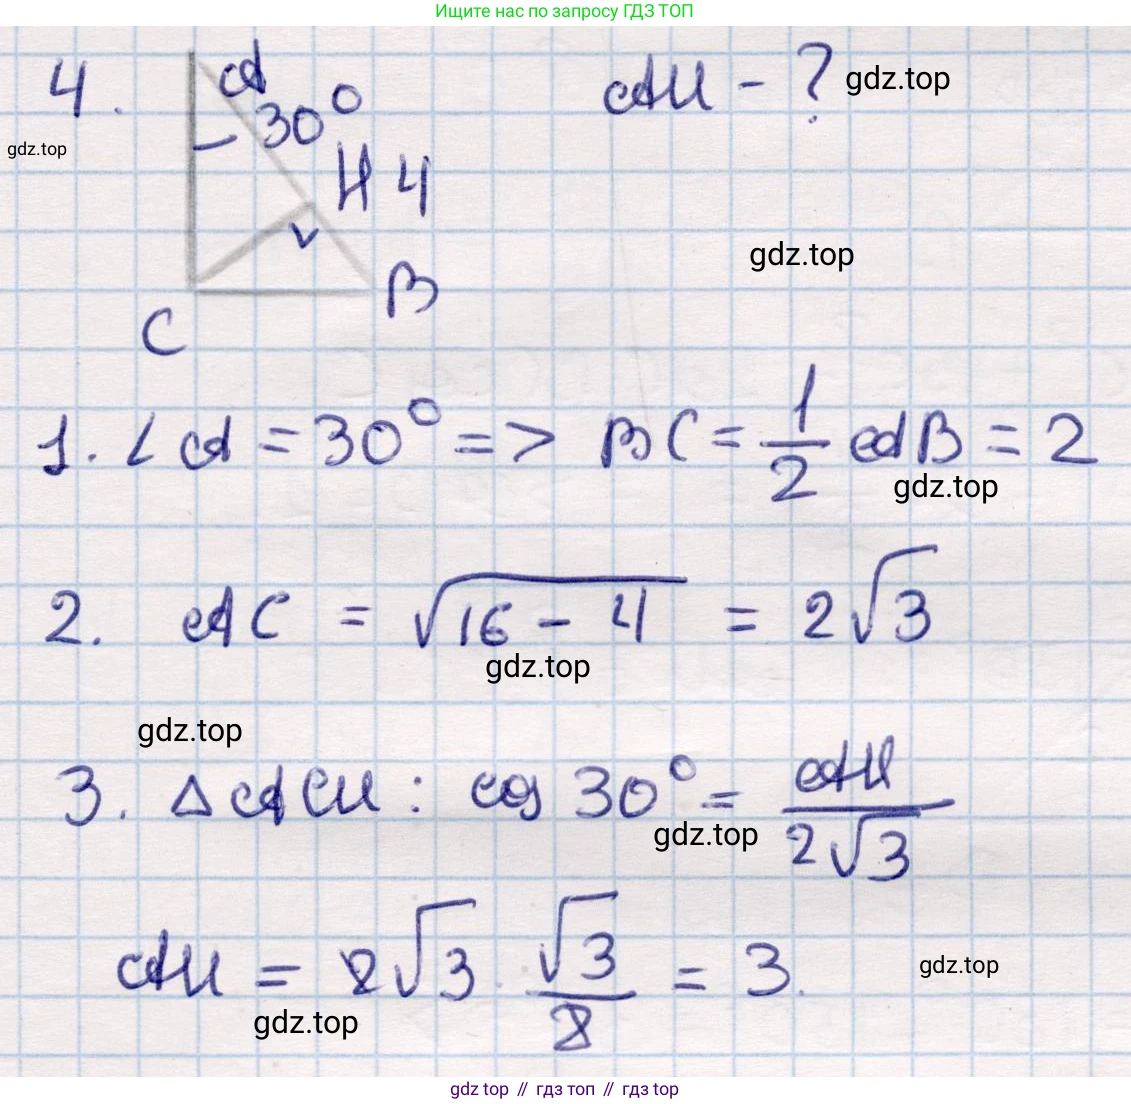 Ищите нас по запросу ГДЗ ТОП
4. A 30° H 4 B C
AH - ?
gdz.top
gdz.top
gdz.top
1. ∠A = 30° => BC = 1/2 AB = 2
gdz.top
2. AC = √(16 - 4) = 2√3
gdz.top
gdz.top
3. △ACH : cos 30° = AH/(2√3)
gdz.top
AH = 2√3 · √3/2 = 3.
gdz.top
gdz.top
gdz top // гдз топ // гдз top